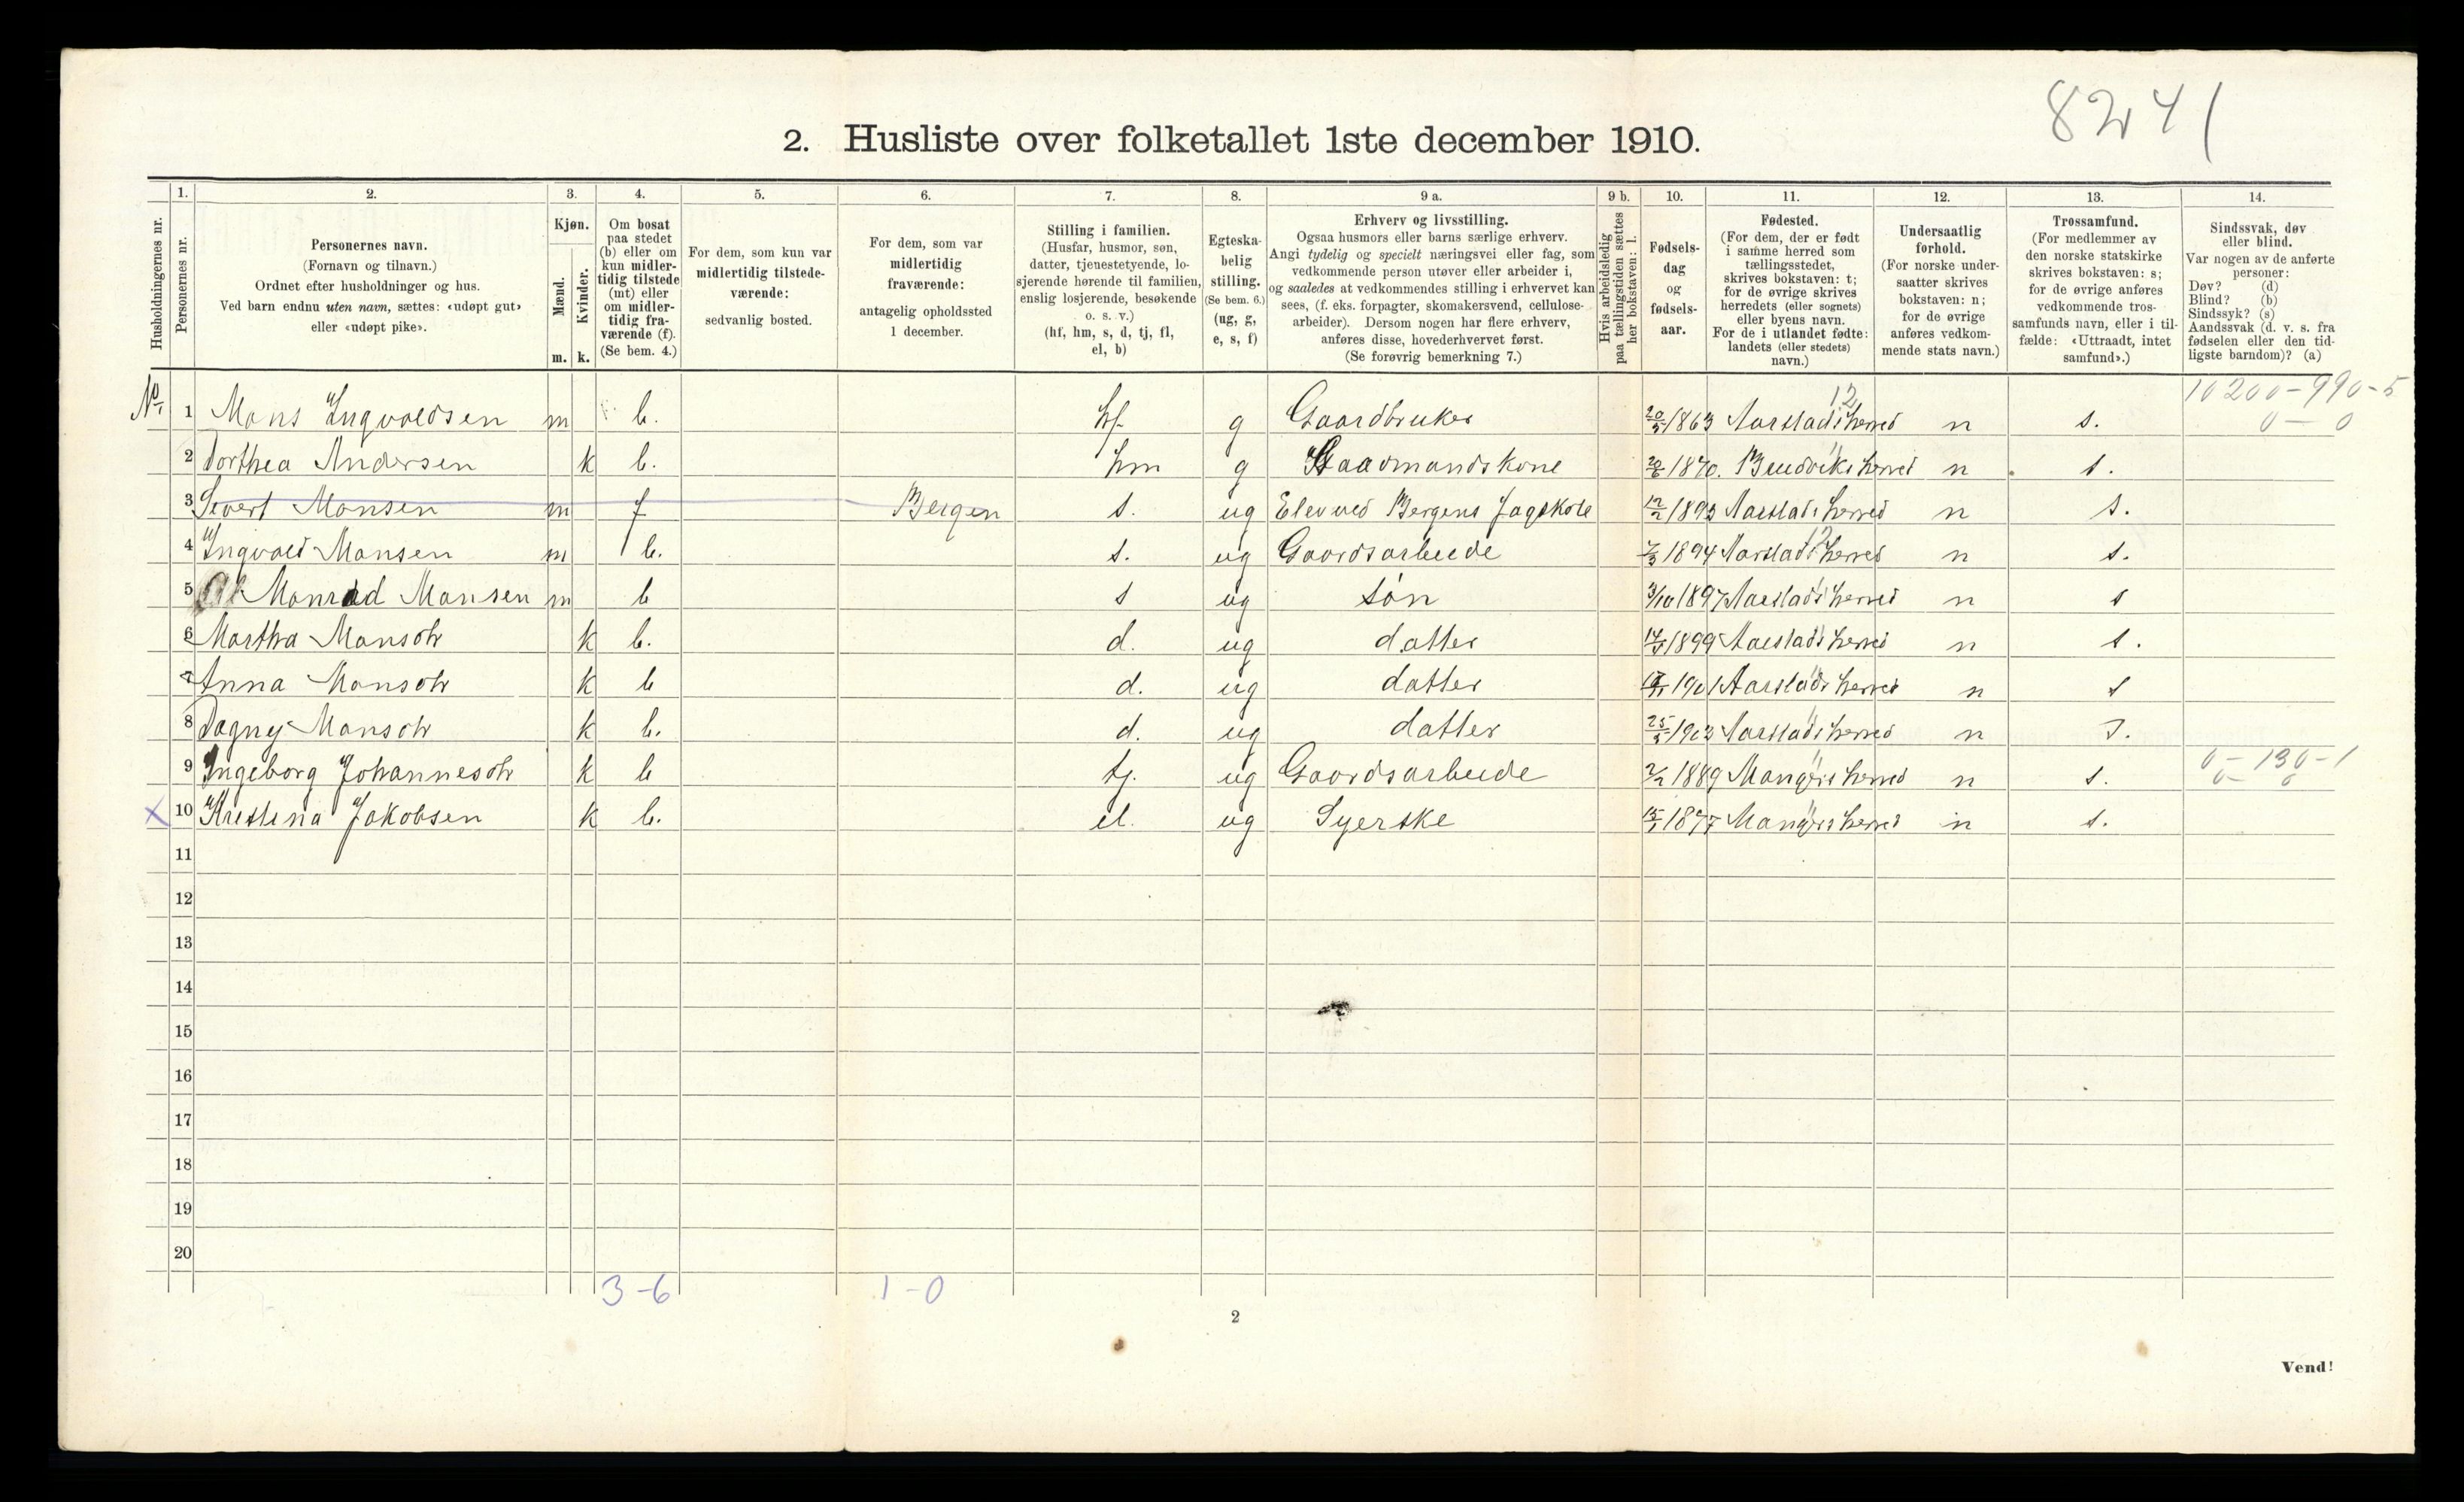 8241
2. Husliste over folketallet 1ste december 1910.
Husholdningernes nr.
1. Personernes nr.
2. Personernes navn.
(Fornavn og tilnavn.)
Ordnet efter husholdninger og hus.
Ved barn endnu uten navn, sættes: «udøpt gut»
eller «udøpt pike».
3. Kjøn.
Mænd. m.
Kvinder. k.
4. Om bosat
paa stedet
(b) eller om
kun midler-
tidig tilstede
(mt) eller
om midler-
tidig fra-
værende (f).
(Se bem. 4.)
5. For dem, som kun var
midlertidig tilstede-
værende:
sedvanlig bosted.
6. For dem, som var
midlertidig
fraværende:
antagelig opholdssted
1 december.
7. Stilling i familien.
(Husfar, husmor, søn,
datter, tjenestetyende, lo-
sjerende hørende til familien,
enslig losjerende, besøkende
o. s. v.)
(hf, hm, s, d, tj, fl,
el, b)
8. Egteska-
belig
stilling.
(Se bem. 6.)
(ug, g,
e, s, f)
9 a. Erhverv og livsstilling.
Ogsaa husmors eller barns særlige erhverv.
Angi tydelig og specielt næringsvei eller fag, som
vedkommende person utøver eller arbeider i,
og saaledes at vedkommendes stilling i erhvervet kan
sees, (f. eks. forpagter, skomakersvend, cellulose-
arbeider). Dersom nogen har flere erhverv,
anføres disse, hovederhvervet først.
(Se forøvrig bemerkning 7.)
9 b. Hvis arbeidsledig
paa tællingstiden sættes
her bokstaven: l.
10. Fødsels-
dag
og
fødsels-
aar.
11. Fødested.
(For dem, der er født
i samme herred som
tællingsstedet,
skrives bokstaven: t;
for de øvrige skrives
herredets (eller sognets)
eller byens navn.
For de i utlandet fødte:
landets (eller stedets)
navn.)
12. Undersaatlig
forhold.
(For norske under-
saatter skrives
bokstaven: n;
for de øvrige
anføres vedkom-
mende stats navn.)
13. Trossamfund.
(For medlemmer av
den norske statskirke
skrives bokstaven: s;
for de øvrige anføres
vedkommende tros-
samfunds navn, eller i til-
fælde: «Uttraadt, intet
samfund».)
14. Sindssvak, døv
eller blind.
Var nogen av de anførte
personer:
Døv? (d)
Blind? (b)
Sindssyk? (s)
Aandssvak (d. v. s. fra
fødselen eller den tid-
ligste barndom)? (a)
12 10200-990-5
1 Mons Ingvoldsen m b. hf. g Gaardbruker 1863 Aarstads herred n s. 0 - 0
2 Dorthea Andersen k b. hm g Gaardmandskone 1870. herred n s.
3 Sivert Monsen m f Bergen s. ug Elev ved Bergens Fagskole 12/2 1893 Aarstads herred n s.
4 Ingvald Monsen m b. s. ug Gaardsarbeide 1894 Aarstads herred n s.
5 Monrad Monsen m b s ug søn 3/10 1897 Aarstads herred n s
6 Martha Monsdtr k b. d. ug datter 1899 Aarstads herred n s.
7 Anna Monsdtr k b d. ug datter 1901 Aarstads herred n s
8 Dagny Monsdtr k b. d. ug datter 1903 Aarstads herred n s.
9 Ingeborg Johannesdtr k b tj. ug Gaardsarbeide 1889 Mangers herred n s. 0-130-1
x 10 Kristina Jakobsen k b. el. ug Syerske 1877 Mangers herred n s.
11
12
13
14
15
16
17
18
19
20
3-6 1-0
2
Vend!